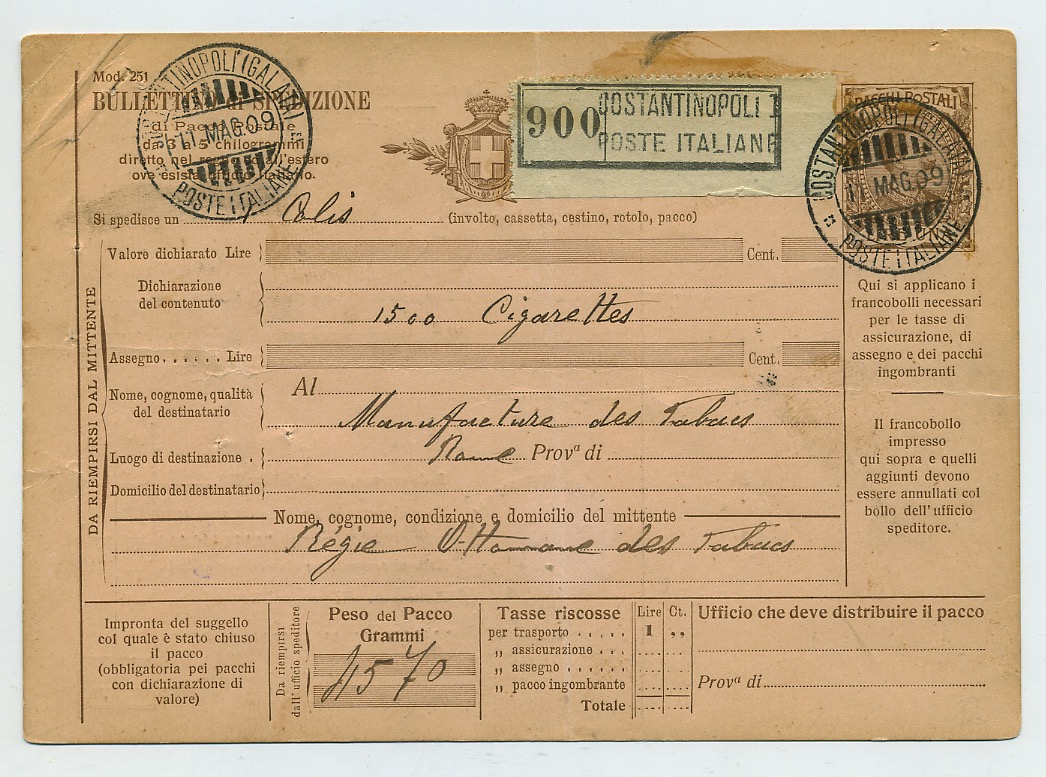 Mod. 251
BULLETTINO di SPEDIZIONE
di Pacco postale
da 3 a 5 chilogrammi
diretto nel regno o all'estero
ove esista ufficio italiano.
COSTANTINOPOLI (GALATA)
11 MAG. 09
POSTE ITALIANE
900
COSTANTINOPOLI 1
POSTE ITALIANE
PACCHI POSTALI
COSTANTINOPOLI (GALATA)
11 MAG. 09
POSTE ITALIANE
Si spedisce un 1 Colis (involto, cassetta, cestino, rotolo, pacco)
Valore dichiarato Lire Cent.
Dichiarazione
del contenuto
1500 Cigarettes
Assegno . . . . . . Lire Cent.
Nome, cognome, qualità
del destinatario
Al
Manufacture des Tabacs
Luogo di destinazione . Rome Provª di
Domicilio del destinatario
DA RIEMPIRSI DAL MITTENTE
Nome, cognome, condizione e domicilio del mittente
Régie Ottomane des Tabacs
Qui si applicano i
francobolli necessari
per le tasse di
assicurazione, di
assegno e dei pacchi
ingombranti
Il francobollo
impresso
qui sopra e quelli
aggiunti devono
essere annullati col
bollo dell'ufficio
speditore.
Impronta del suggello
col quale è stato chiuso
il pacco
(obbligatoria pei pacchi
con dichiarazione di
valore)
Da riempirsi
dall'ufficio speditore
Peso del Pacco
Grammi
4570
Tasse riscosse Lire Ct.
per trasporto . . . . . 1 ,,
,, assicurazione . . .
,, assegno . . . . . .
,, pacco ingombrante
Totale
Ufficio che deve distribuire il pacco
Provª di